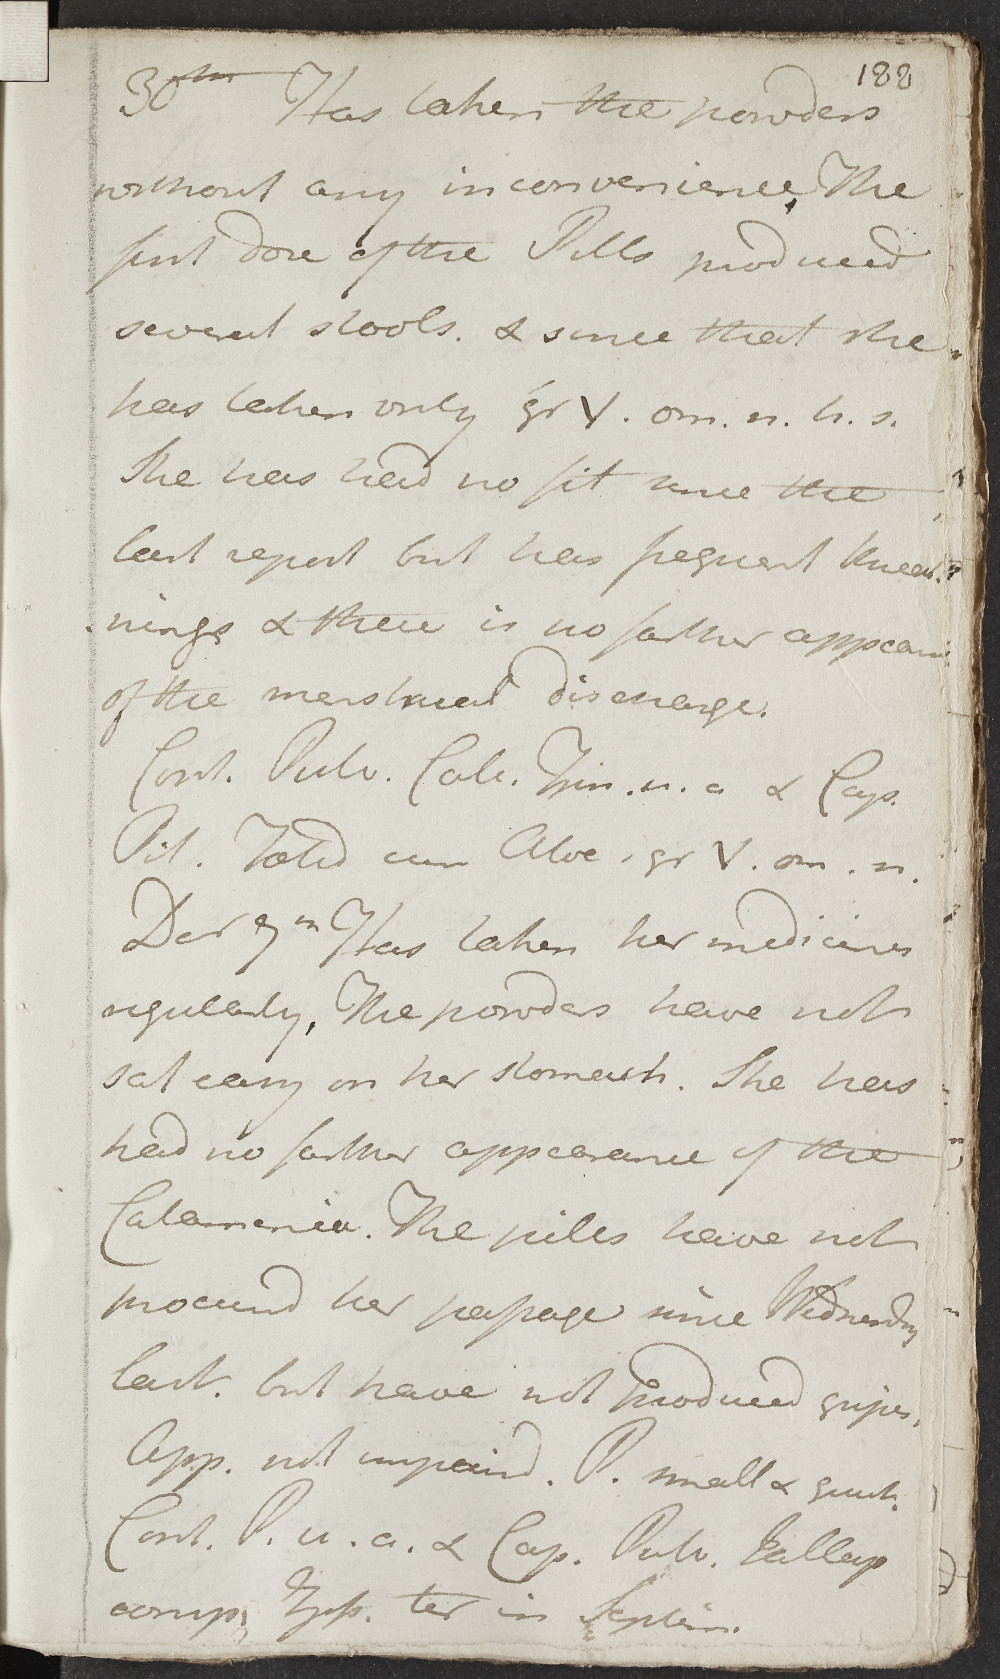 188
30th Has taken the powders
without any inconvenience, The
first dose of the Pills produced
several stools. & since that she
has taken only gr V. om. n. h. s.
She has had no fit since the
last report but has frequent
nings & there is no farther appearance
of the menstrual discharge.
Cont. Pulv. u. a & Cap.
Pil. cum Aloe. gr V. om. n.
Decr 7th Has taken her medicines
regularly, The powders have not
sat easy on her stomach. She has
had no farther appearance of the
Catamenia. The pills have not
procured her passage since Wednesday
last. but have not produced gripes,
App. not impaired. P. small & quick.
Cont. P. u. a. & Cap. Pulv. Jallap
comp. ʒſs. ter in Septim.